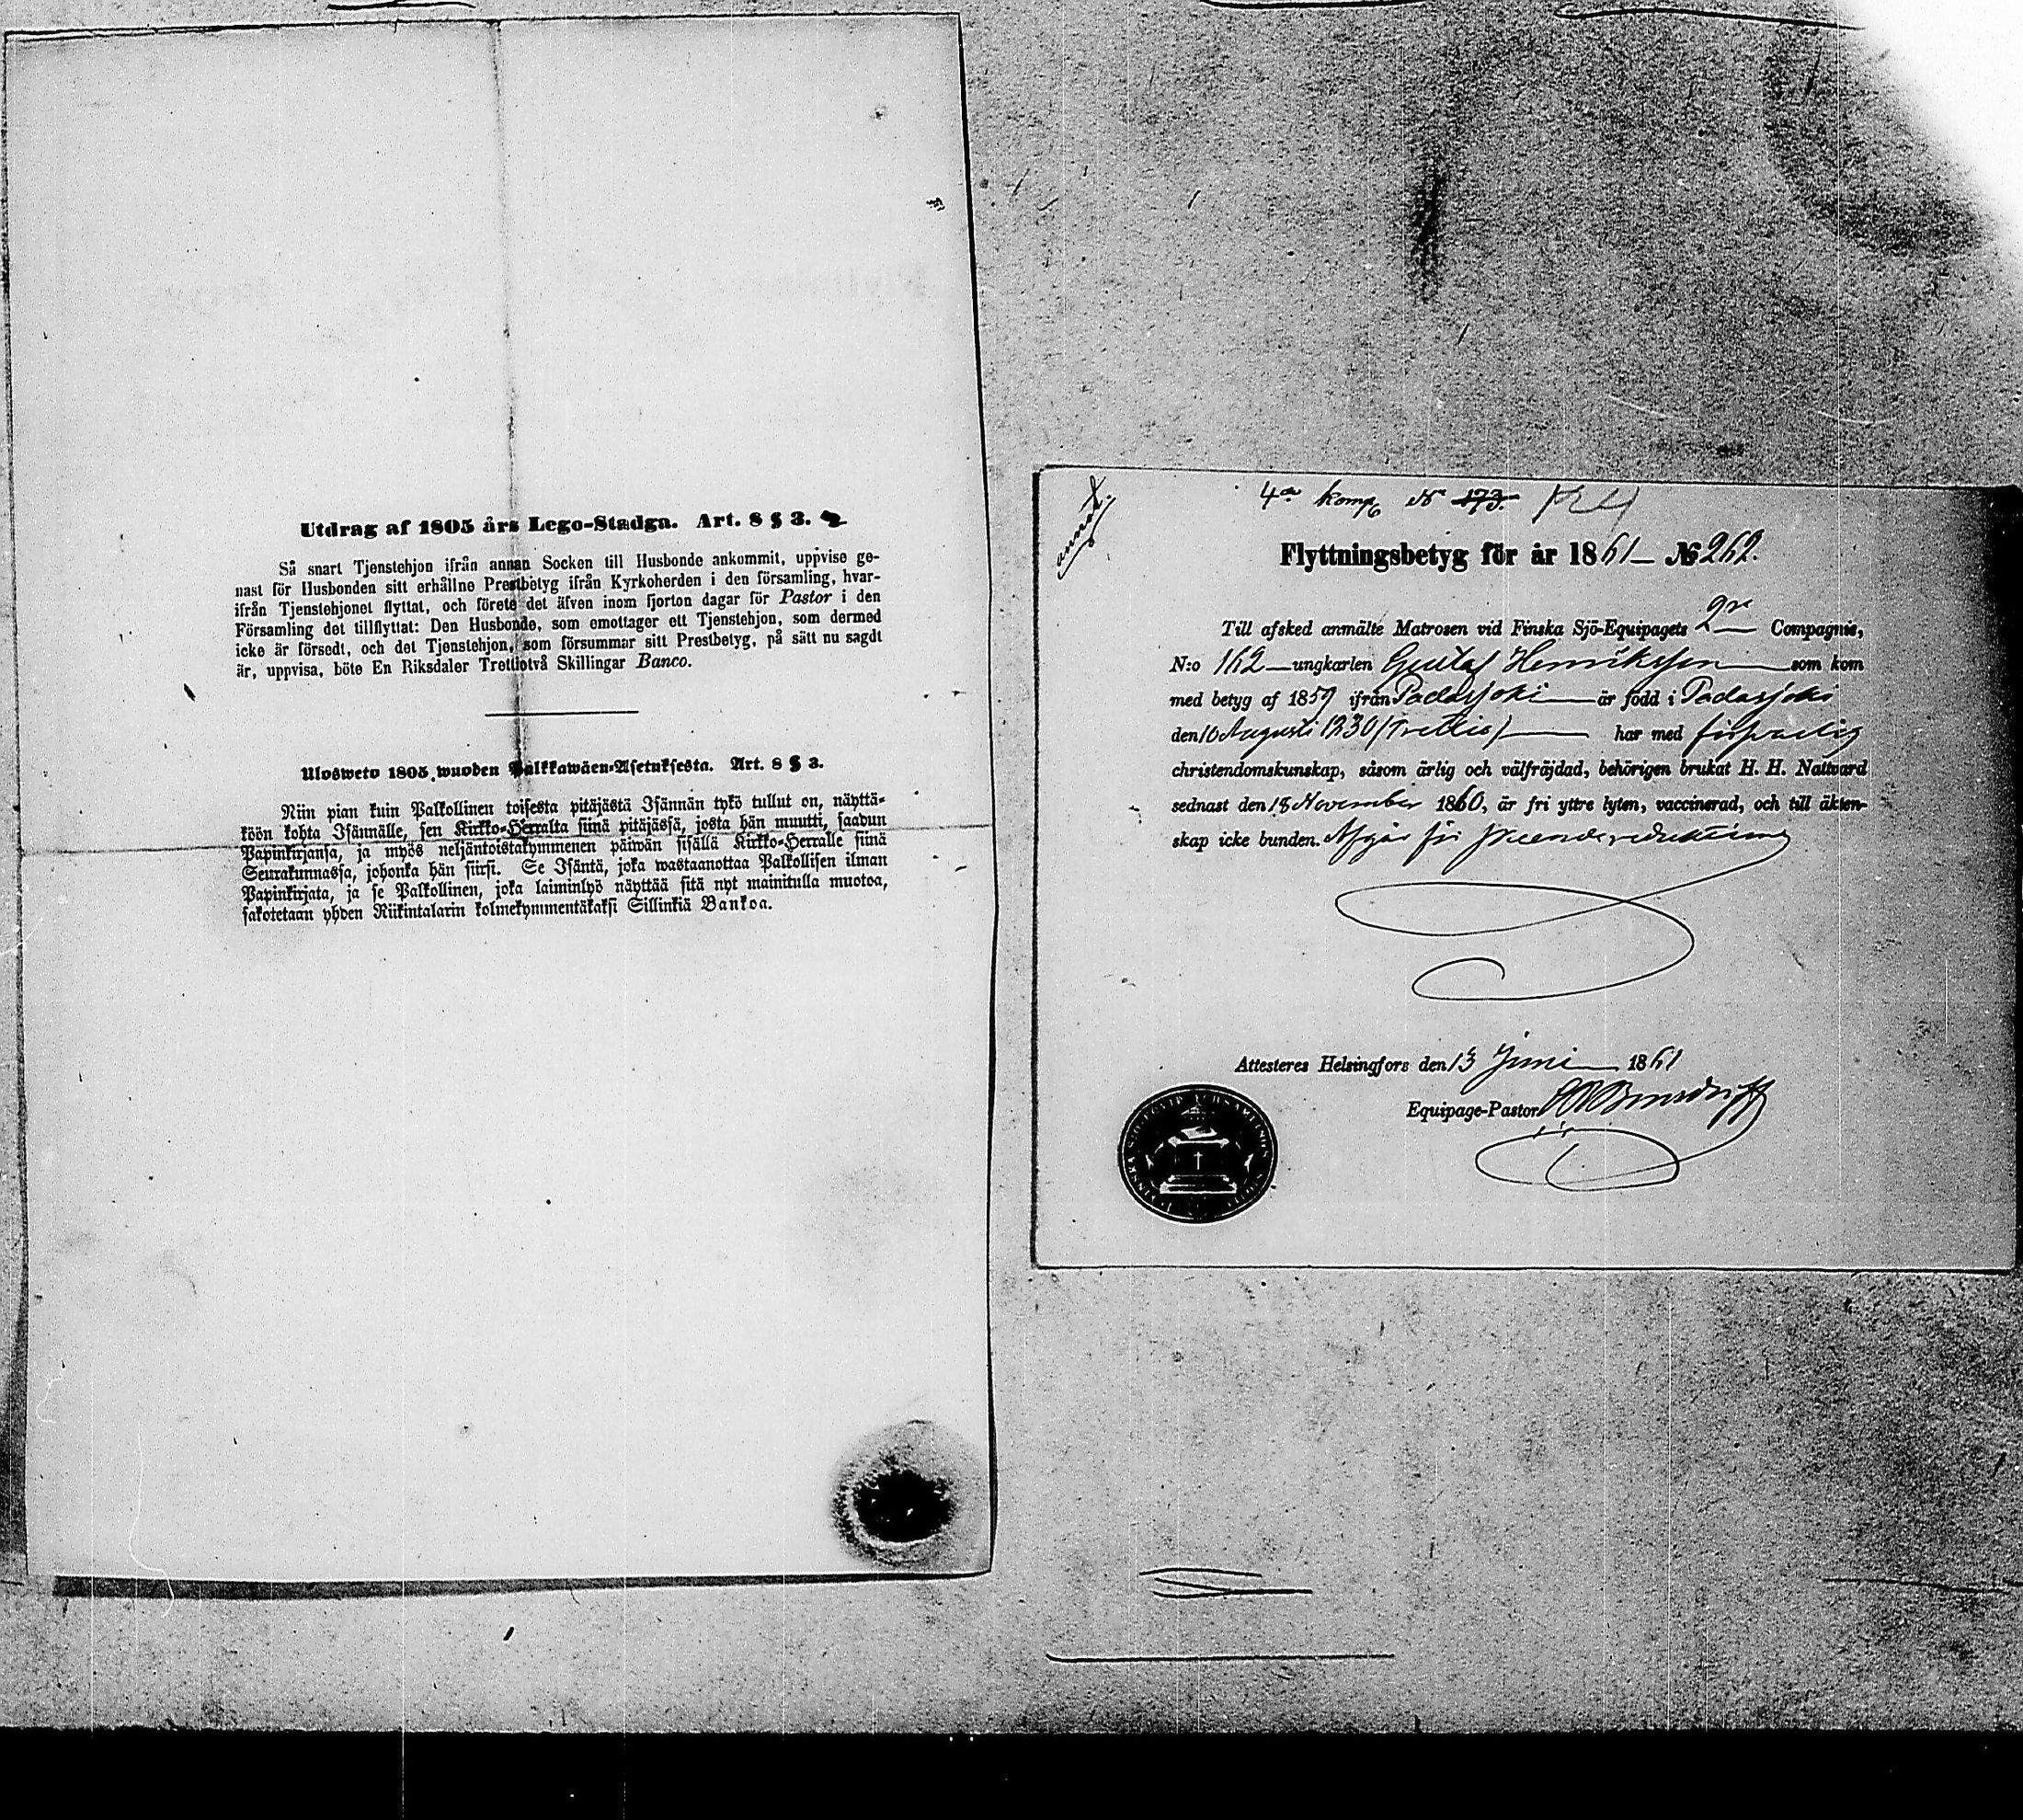 Utdrag af 1805 års Lego-Stadga. Art. 8 § 3.
Så snart Tjenstehjon ifrån annan Socken till Husbonde ankommit, uppvise ge-
nast för Husbonden sitt erhållne Prestbetyg ifrån Kyrkoherden i den församling, hvar-
ifrån Tjenstehjonet flyttat, och förete det äfven inom fjorton dagar för Pastor i den
Församling det tillflyttat: Den Husbonde, som emottager ett Tjenstehjon, som dermed
icke är försedt, och det Tjenstehjon, som försummar sitt Prestbetyg, på sätt nu sagdt
är, uppvisa, böte En Riksdaler Trettiotvå Skillingar Banco.
Ulosweto 1805 wuoden Palkkawäen-Asetuksesta. Art. 8 § 3.
Niin pian kuin Palkollinen toisesta pitäjästä Isännän tykö tullut on, näyttä-
köön kohta Isännälle, sen Kirkko-Herralta siinä pitäjässä, josta hän muutti, saadun
Papinkirjansa, ja myös neljäntoistakymmenen päiwän sisällä Kirkko-Herralle siinä
Seurakunnassa, johonka hän siirsi. Se Isäntä, joka wastaanottaa Palkollisen ilman
Papinkirjata, ja se Palkollinen, joka laiminlyö näyttää sitä nyt mainitulla muotoa,
sakotetaan yhden Riikintalarin kolmekymmentäkaksi Sillinkiä Bankoa.
4de komp. N° 173.
Flyttningsbetyg för år 1861 — № 262.
Till afsked anmälte Matrosen vid Finska Sjö-Equipagets 2:a Compagnie,
N:o 162 ungkarlen Gustaf Henriksson som kom
med betyg af 1859 ifrån Padasjoki är född i Padasjoki
den 10 Augusti 1830 (Trettio) har med försvarlig
christendomskunskap, såsom ärlig och välfräjdad, behörigen brukat H. H. Nattvard
sednast den 18 November 1860, är fri yttre lyten, vaccinerad, och till äkten-
skap icke bunden. Afgår för
Attesteres Helsingfors den 13 Juni 1861
Equipage-Pastor